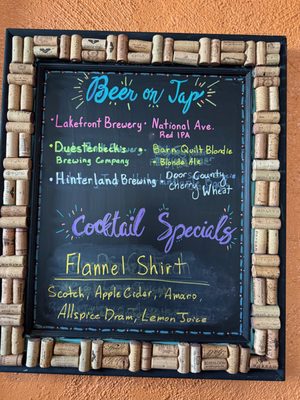 Beer on Tap
• Lakefront Brewery • National Ave.
Red IPA
• Duesterbeck's • Barn Quilt Blondie
Brewing Company - Blonde Ale
• Hinterland Brewing • Door County
Cherry Wheat
Cocktail Specials
Flannel Shirt
Scotch, Apple Cider, Amaro,
Allspice Dram, Lemon Juice